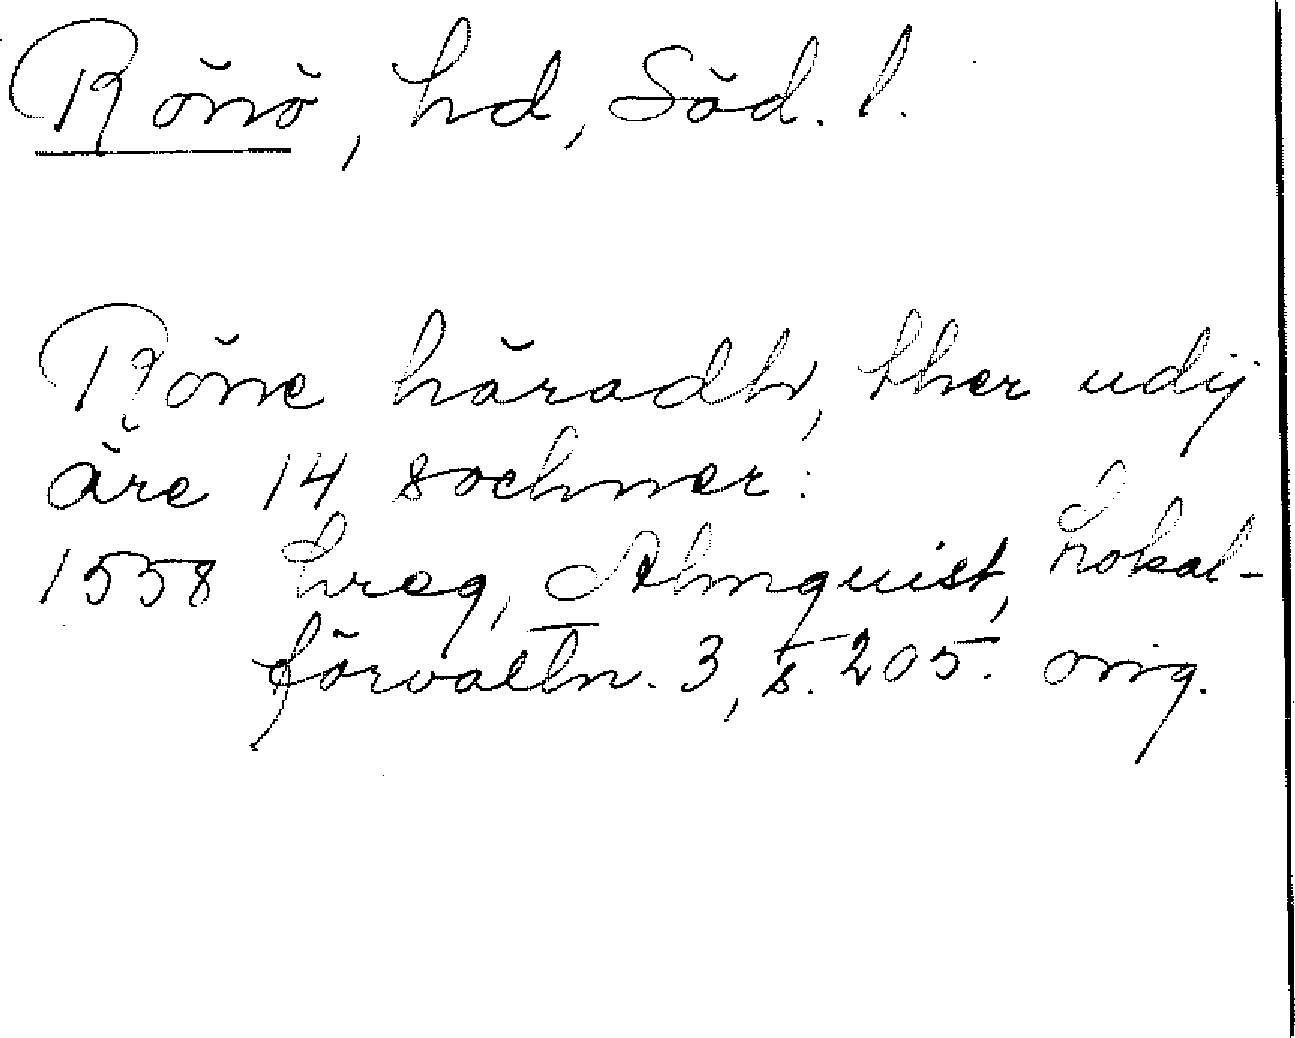 Rönö, hd, Söd. l.
Röne häradh, ther udij
äre 14 sochner:
1558 hreg, Almquist, Lokal-
förvaltn. 3, s. 205. orig.